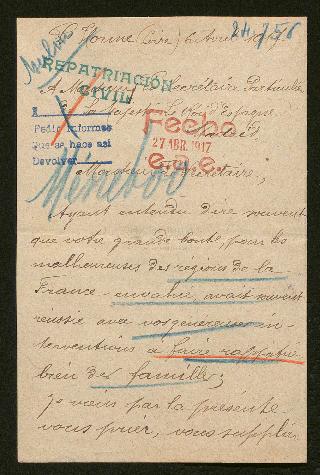 24756
St Yorre 6 Avril 1917
REPATRIACIÓN
CIVIL
A Secrétaire Particulier
Sa Majesté Le Roi d'Espagne
A
Pedir informes
Que se hace así
Devolver
Fecho
27 ABR. 1917
Madrid
Monsieur le Secrétaire,
Ayant entendu dire souvent
que votre grande bonté, pour les
malheureuses des régions de la
France envahie avait souvent
réussie avec vos généreuses in-
terventions à faire rappatrier
bien des famille;
Je viens par la présente
vous prier, vous supplier